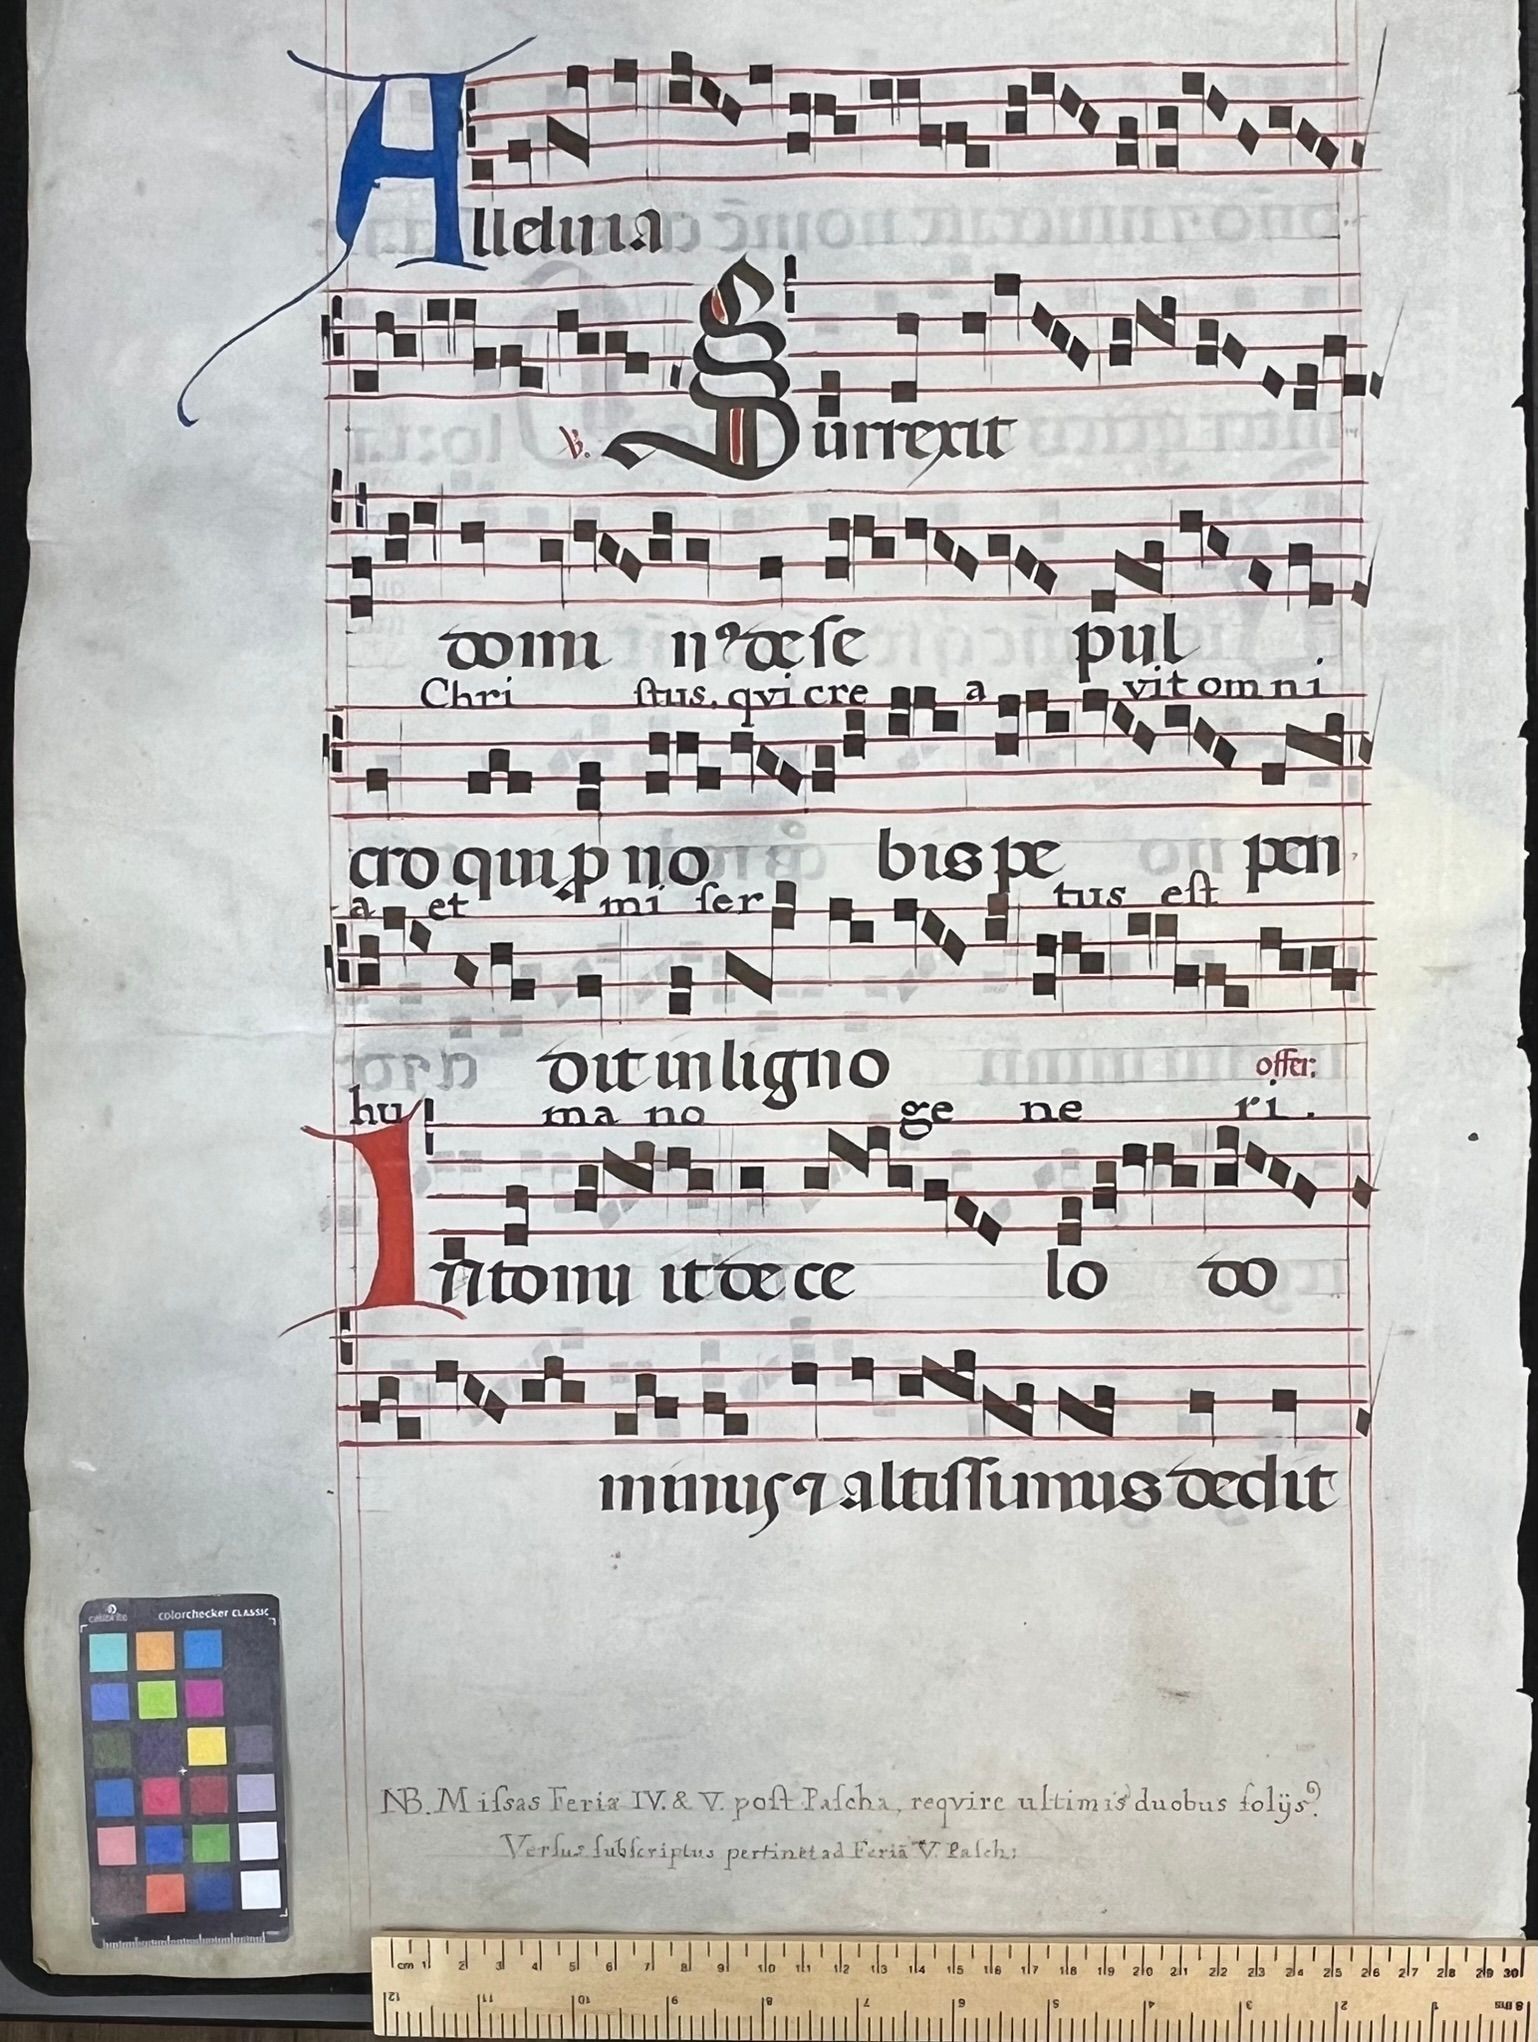 Alleluia
℣. Surrexit
domi nꝰ de se pul
Chri ſtus. qvi cre a vit omni
cro qui ꝓ no bis pe pen
a et mi ſer tus eſt
dit in ligno offer:
hu ma no ge ne ri.
Intonu it de ce lo do
minus ⁊ altiſſimus dedit
colorchecker CLASSIC
NB. Miſsas Feriæ IV. & V. poſt Paſcha, reqvire ultimis duobus folijs.
Verſus ſubſcriptus pertinet ad Feriā V. Paſch:
cm 1 2 3 4 5 6 7 8 9 10 11 12 13 14 15 16 17 18 19 20 21 22 23 24 25 26 27 28 29 30
12 11 10 9 8 7 6 5 4 3 2 1